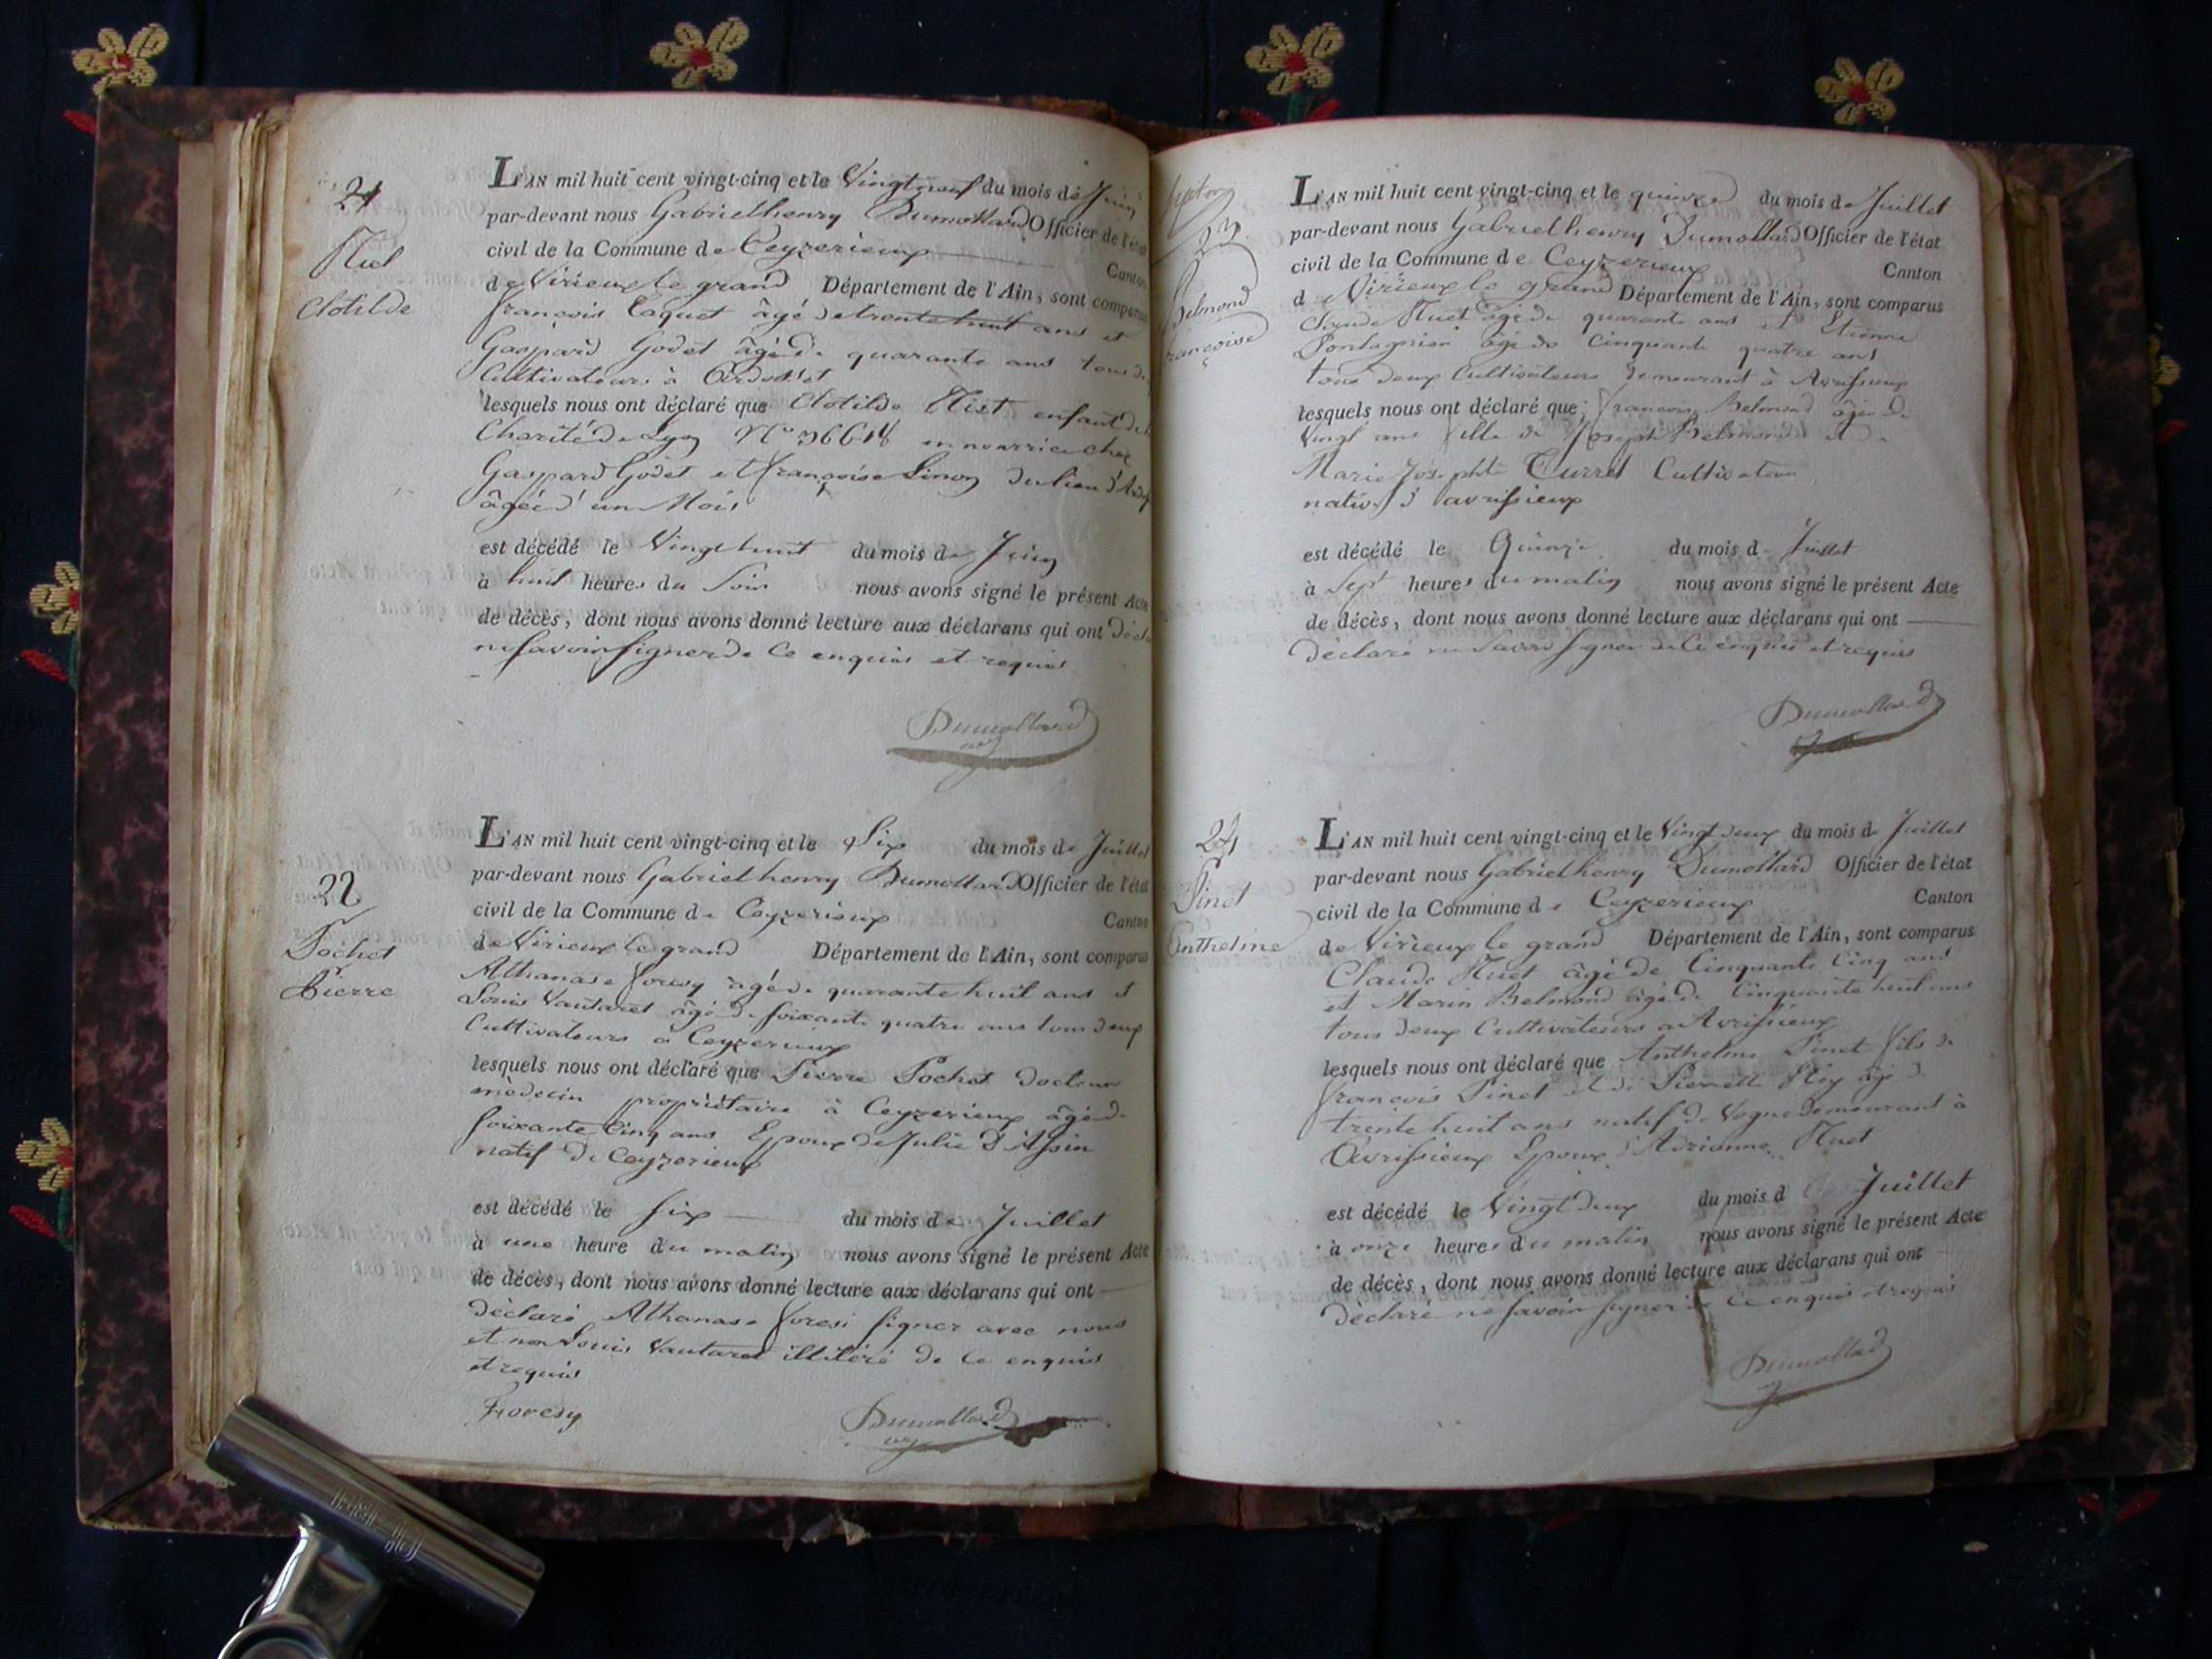 21
Clotilde
L'AN mil huit cent vingt-cinq et le Vingtneuf du mois de Juin
par-devant nous Gabrielhenry Dumollard Officier de l'état
civil de la Commune de Ceyzerieux
Canton
de Virieux le grand Département de l'Ain, sont comparus
françois Caquet âgé de trentehuit ans et
Gaspard Godet âgé de quarante ans tous de
Cultivateurs à
lesquels nous ont déclaré que Clotilde enfant de
Charité de Lyon N° 36618 en nourrice chez
Gaspard Godet et françoise du lieu
âgée d'un Mois
est décédé le Vingthuit du mois de Juin
à huit heures du Soir nous avons signé le présent Acte
de décès, dont nous avons donné lecture aux déclarans qui ont
ne savoir signer de Ce enquis et requis
Dumollard
22
Pochet
Pierre
L'AN mil huit cent vingt-cinq et le Six du mois de Juillet
par-devant nous Gabrielhenry Dumollard Officier de l'état
civil de la Commune de Ceyzerieux
Canton
de Virieux le grand Département de l'Ain, sont comparus
Athanase foresy âgé de quarantehuit ans et
Louis Vautaret âgé de soixante quatre ans tous deux
Cultivateurs à Ceyzerieux
lesquels nous ont déclaré que Pierre Pochet docteur
médecin propriétaire à Ceyzerieux âgé de
soixante Cinq ans Epoux de Julie
natif de Ceyzerieux
est décédé le six du mois de Juillet
à une heure du matin nous avons signé le présent Acte
de décès, dont nous avons donné lecture aux déclarans qui ont
déclaré Athanase foresi signer avec nous
et non Louis Vautaret illitéré de Ce enquis
et requis
Foresy
Dumollard
23
Belmond
françoise
L'AN mil huit cent vingt-cinq et le quinze du mois de Juillet
par-devant nous Gabrielhenry Dumollard Officier de l'état
civil de la Commune de Ceyzerieux
Canton
de Virieux le grand Département de l'Ain, sont comparus
Claude Huet âgé de quarante ans et Etienne
âgé de Cinquante quatre ans
tous deux Cultivateurs demeurant à Avrissieux
lesquels nous ont déclaré que françoise Belmond âgée de
Vingt ans fille de Joseph Belmond et de
Marie Josephte Curret Cultivateurs
native d'avrissieux
est décédé le Quinze du mois de Juillet
à Sept heures du matin nous avons signé le présent Acte
de décès, dont nous avons donné lecture aux déclarans qui ont
déclaré ne Savoir signer de Ce enquis et requis
Dumollard
24
Pinet
Anthelme
L'AN mil huit cent vingt-cinq et le Vingt deux du mois de Juillet
par-devant nous Gabrielhenry Dumollard Officier de l'état
civil de la Commune de Ceyzerieux
Canton
de Virieux le grand Département de l'Ain, sont comparus
Claude Huet âgé de Cinquante Cinq ans
et Marin Belmond âgé de Cinquante huit ans
tous deux Cultivateurs a Avrissieux
lesquels nous ont déclaré que Anthelme Pinet fils de
françois Pinet et de Pierrette âgé de
trente huit ans natif de demeurant à
Avrissieux Epoux d'Adrianne Huet
est décédé le Vingt deux du mois d Juillet
à onze heures du matin nous avons signé le présent Acte
de décès, dont nous avons donné lecture aux déclarans qui ont
déclaré ne savoir signer de Ce enquis et requis
Dumollard